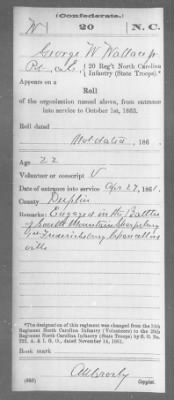 (Confederate.)
W 20 N.C.
George W Wallace Jr
Pvt Co E, 20 Reg't North Carolina Infantry (State Troops).*
Appears on a
Roll
of the organization named above, from entrance
into service to October 1st, 1863.
Roll dated
Not dated, 186 .
Age 22
Volunteer or conscript V
Date of entrance into service Apr 27, 1861.
County Duplin
Remarks: Engaged in the Battles
of South Mountain Sharpsburg
Fredericksburg Chancellors
ville
*The designation of this regiment was changed from the 10th
Regiment North Carolina Infantry (Volunteers) to the 20th
Regiment North Carolina Infantry (State Troops) by S. O. No.
222, A. & I. G. O., dated November 14, 1861.
Book mark
(655) Copyist.